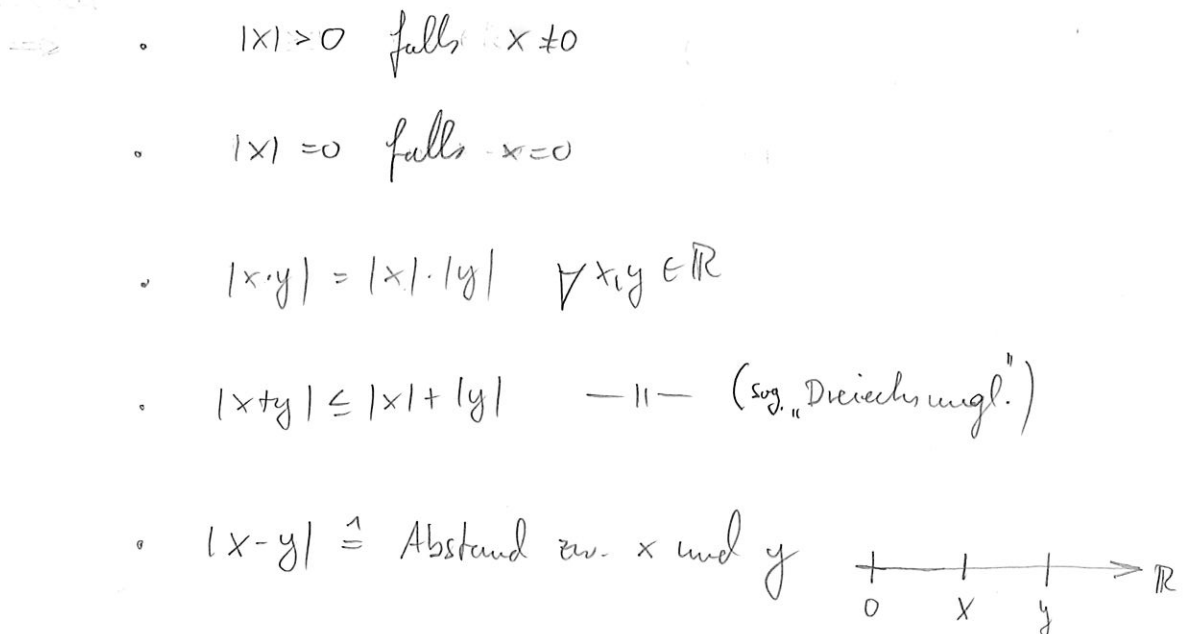 • |x| > 0 falls x ≠ 0
• |x| = 0 falls x = 0
• |x·y| = |x|·|y| ∀ x,y ∈ ℝ
• |x+y| ≤ |x| + |y| —〃— (sog. „Dreiecksungl.")
• |x-y| ≙ Abstand zw. x und y
0 x y ℝ